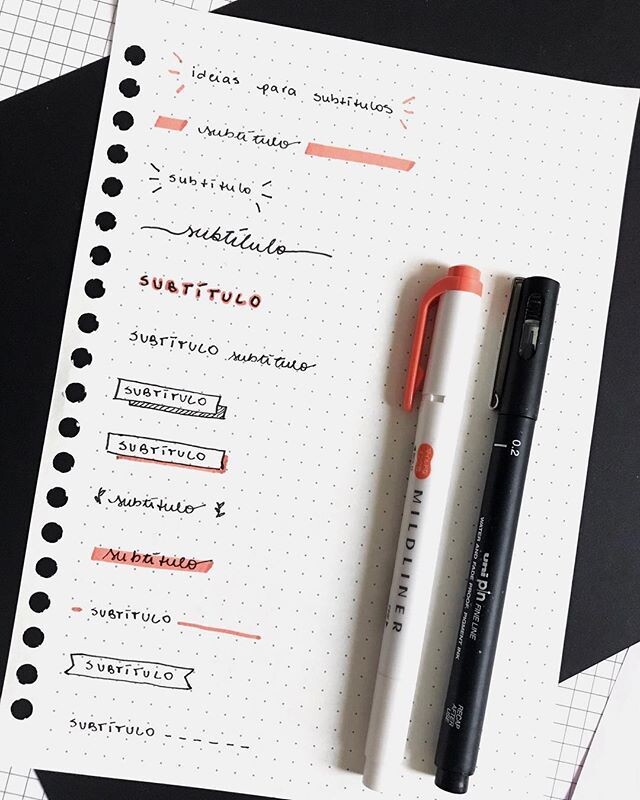 ideias para subtítulos
subtítulo
subtítulo
subtítulo
SUBTÍTULO
SUBTÍTULO subtítulo
SUBTÍTULO
SUBTÍTULO
subtítulo
subtítulo
SUBTÍTULO
SUBTÍTULO
SUBTÍTULO
MILDLINER
0.2
uni pin FINE LINE
WATER AND FADE PROOF, PIGMENT INK
RECAP
AFTER
USE